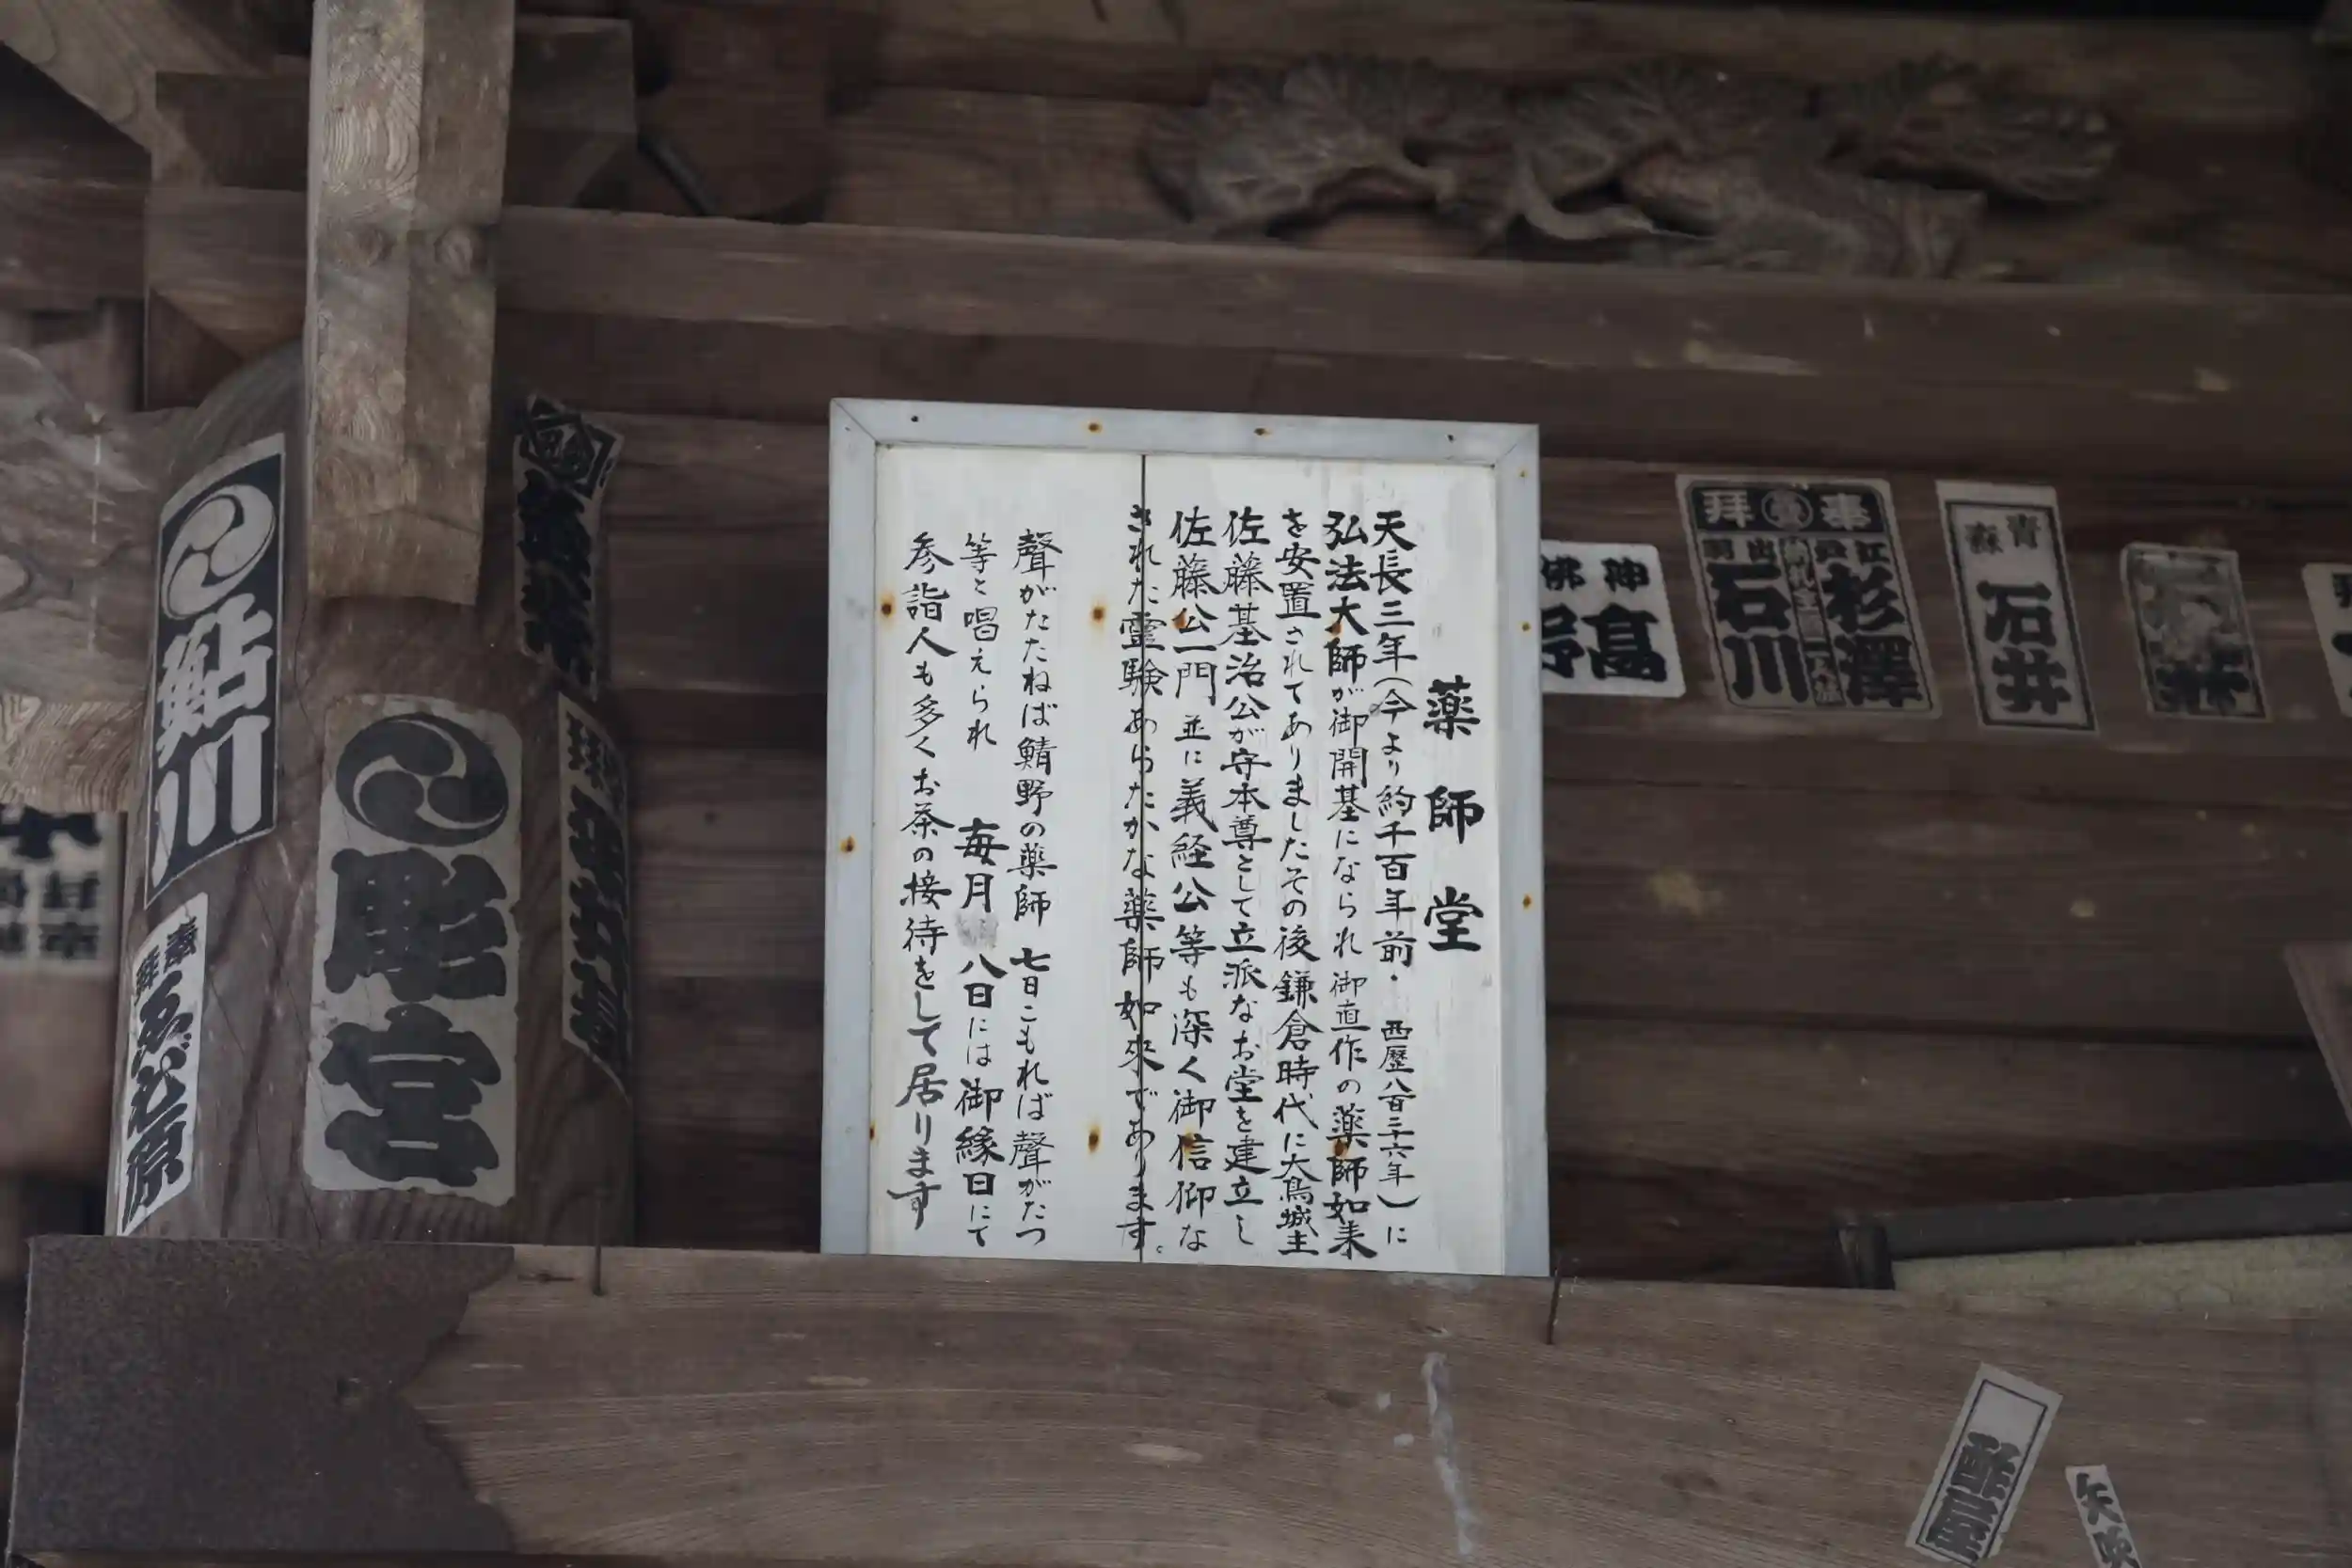 薬師堂
天長三年(今より約千百年前・西歴八百二十六年)に
弘法大師が御開基になられ御直作の薬師如来
を安置されてありましたその後鎌倉時代に大鳥城主
佐藤基治公が守本尊として立派なお堂を建立し
佐藤公一門並に義経公等も深く御信仰な
された霊験あらたかな薬師如来であります。
聲がたたねば鯖野の薬師 七日こもれば聲がたつ
等と唱えられ 毎月 八日には御縁日にて
参詣人も多くお茶の接待をして居ります
神佛
髙
奉拝
江戸
杉澤
石川
青森
石井
鮎川
彫宮
奉拝
ゑび原
酢屋
矢吹